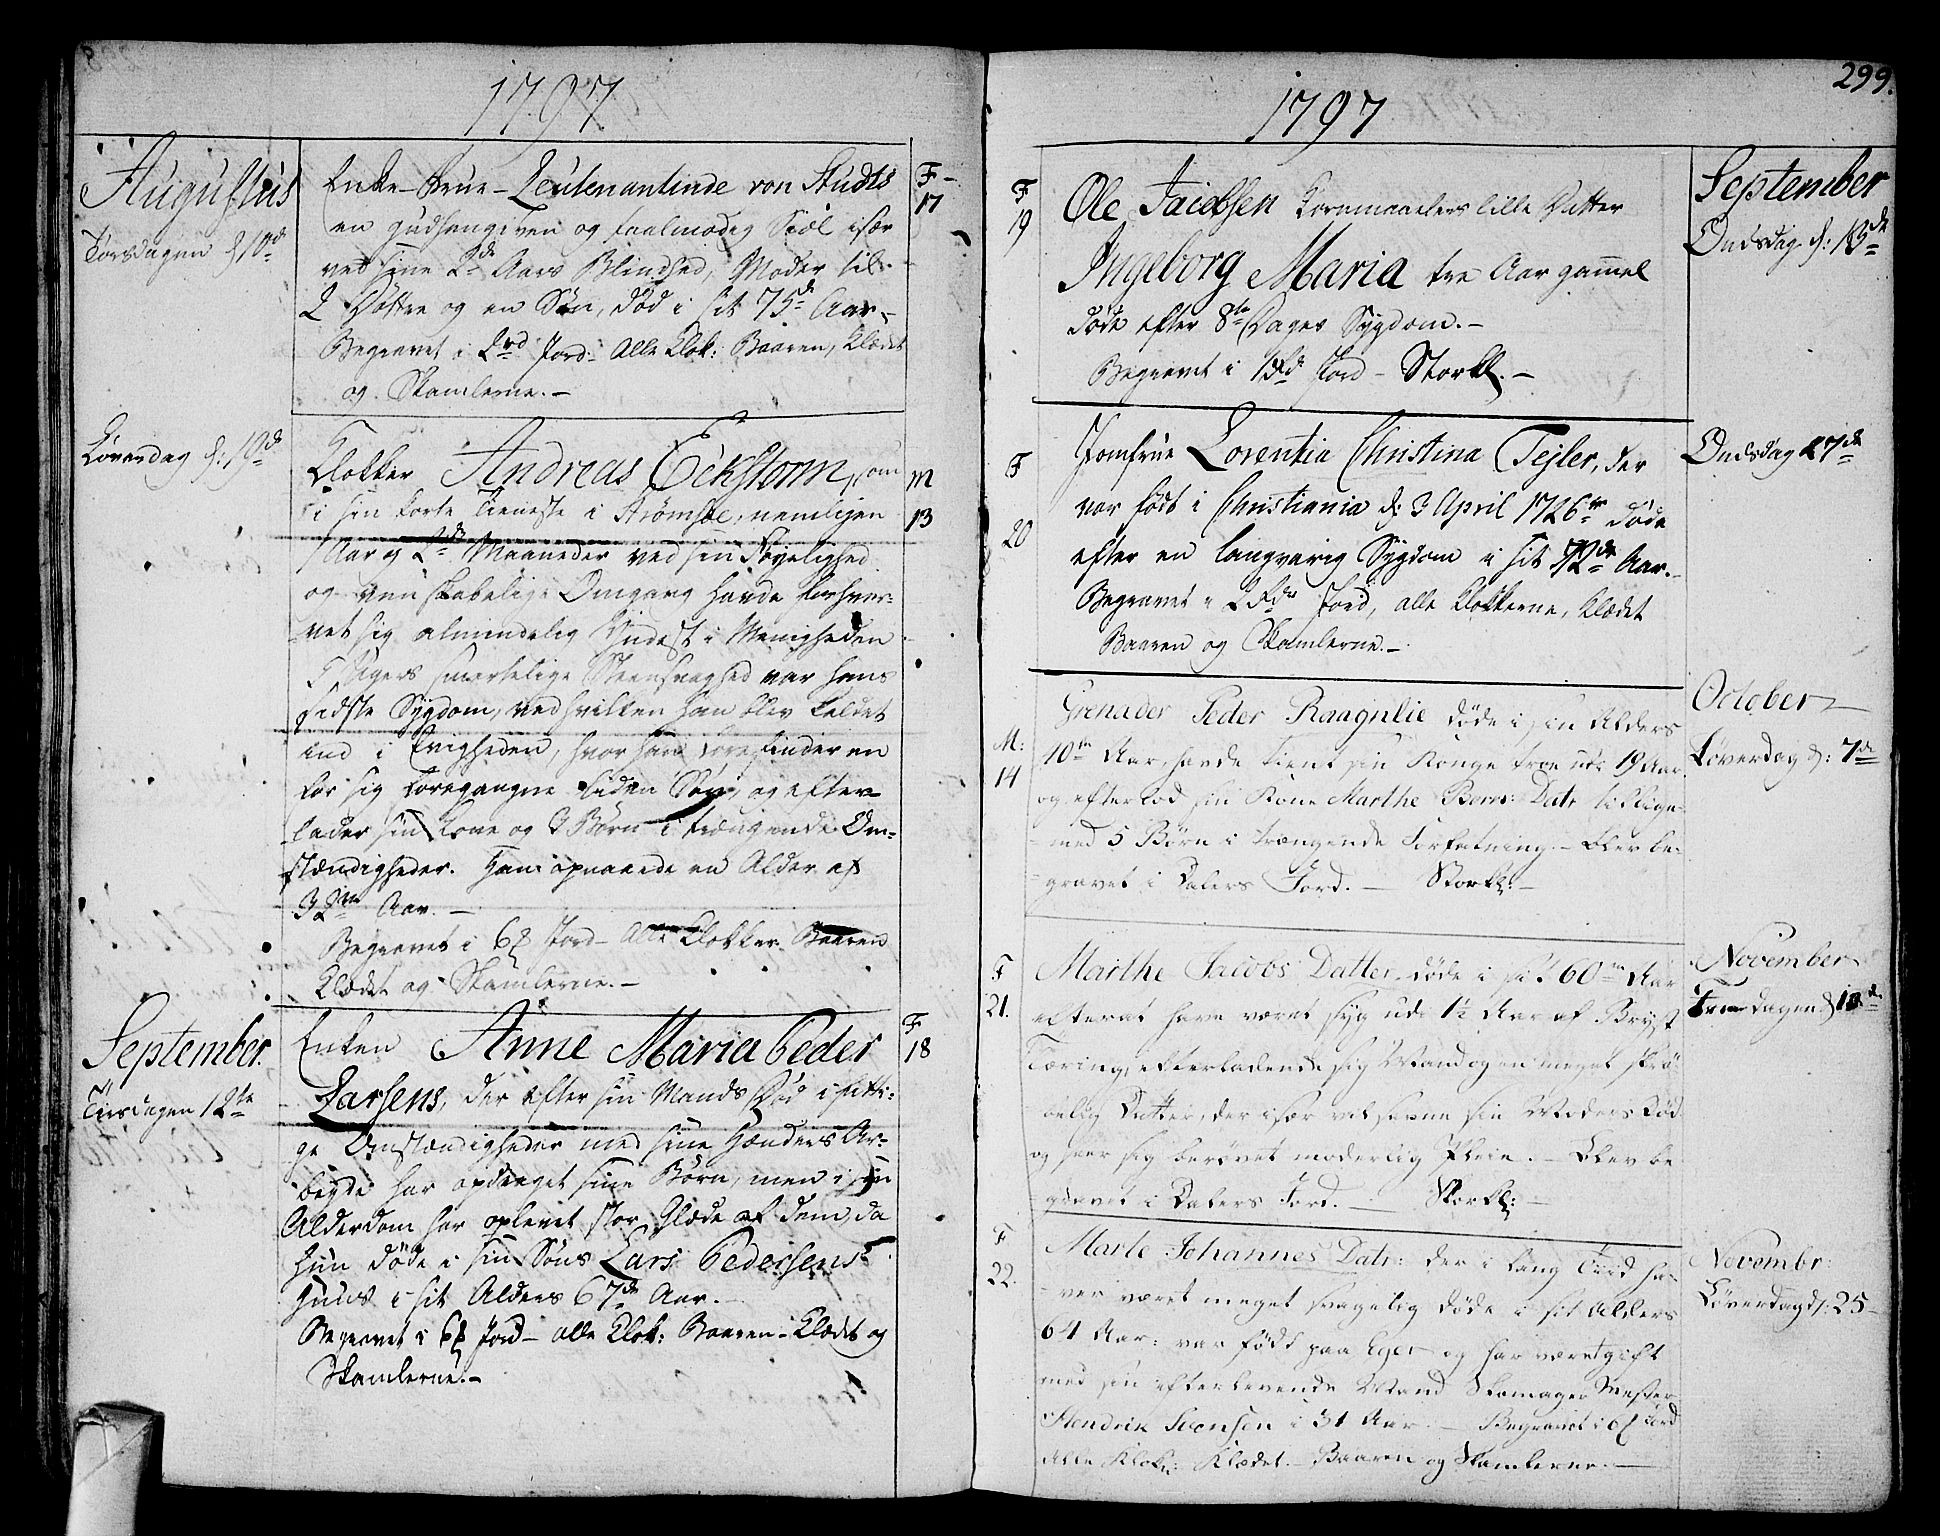 1797
Augustus
Torsdagen d 10de
Enke-Frue-Leutenantinde von Studts
en gudhengiven og taalmodig Siæl især
ved sine 2de Aars Blindhed, Moder til
2 Døttre og en Søn, død i sit 75de Aar.-
Begravet i 2rd Jord- Alle Klok: Baaren, Klædet
og Skamlerne.-
F-
17
Løverdag d: 19de
Klokker Andreas Eckstorm, som
i sin korte Tieneste i Strømsøe, nemligen
1 Aar og 2de Maaneder ved sin Føyelighed
og venskabelige Omgang havde forhver-
vet sig almindelig Yndest i Menigheden
5 Ugers smertelige Steensvaghed var hans
sidste Sygdom, ved hvilken han blev kaldet
ind i Evigheden, hvor han forefinder en
for sig foregangne liden Søn, og efter-
lader sin Kone og 3 Børn i trængende Om-
stændigheder. Han opnaaede en Alder af
32te Aar.-
Begravet i 6 Jord- Alle Klokker Baaren
Klædet og Skamlerne.-
M
13
September
Tirsdagen 12te
Enken Anne Maria Peder
Larsens, der efter sin Mands Død i fatti:
ge Omstændigheder med sine Hænders Ar-
beyde har opdraget sine Børn, men i sin
Alderdom har oplevet stor Glæde af dem, da
hun døde i sin Søns Lars Pedersens
Huus i sit Alders 67de Aar.
Begravet i 6 Jord- alle Klok: Baaren-Klædet og
Skamlerne.-
F
18
1797
299.
F
19
Ole Jacobsen Kornmaalers lille Datter
Ingeborg Maria tre Aar gammel
døde efter 8te Dages Sygdom.-
Begravet i 1 Rd Jord- Storkl.-
September
Ondsdag d: 13de
F
20
Jomfrue Lorentia Christina Tejler, der
var født i Christiania d: 3 April 1726 døde
efter en langvarig Sygdom i sit 72de Aar.-
Begravet i 2 Rdr Jord, alle Klokkerne, Klædet
Baaren og Skamlerne.-
Ondsdag 27de
M:
14
Grenader Peder Raagnlie døde i sin Alders
40de Aar, havde tient sin Konge troe udi 19 Aar
og efterlod sin Kone Marthe Datr tillige
med 5 Børn i trængende Forfatning.- Blev be-
gravet i Dalers Jord.- Storkl:-
October
Løverdag d: 7de
F
21.
Marthe Jacobs Datter døde i sit 60de Aar
efterat have været syg udi 1½ Aar af Bryst
Tæring, efterladende sig Mand og en meget skrø-
belig Datter, der især ved denne sin Moders Død
og seer sig berøvet moderlig Pleie.- Blev be
gravet i Dalers Jord.- Storkl:-
November
dagen d 18de
F
22.
Marte Johannes Datr: der i lang Tiid ha-
ver været meget svagelig døde i sit Alders
64 Aar: var født paa Eger og har været gift
med sin efterlevende Mand Skomager Mester
Hendrik Svensen i 31 Aar.- Begravet i 6 Jord
Alle Klok: Klædet- Baaren og Skamlerne.-
Novembr:
Løverdag d: 25-